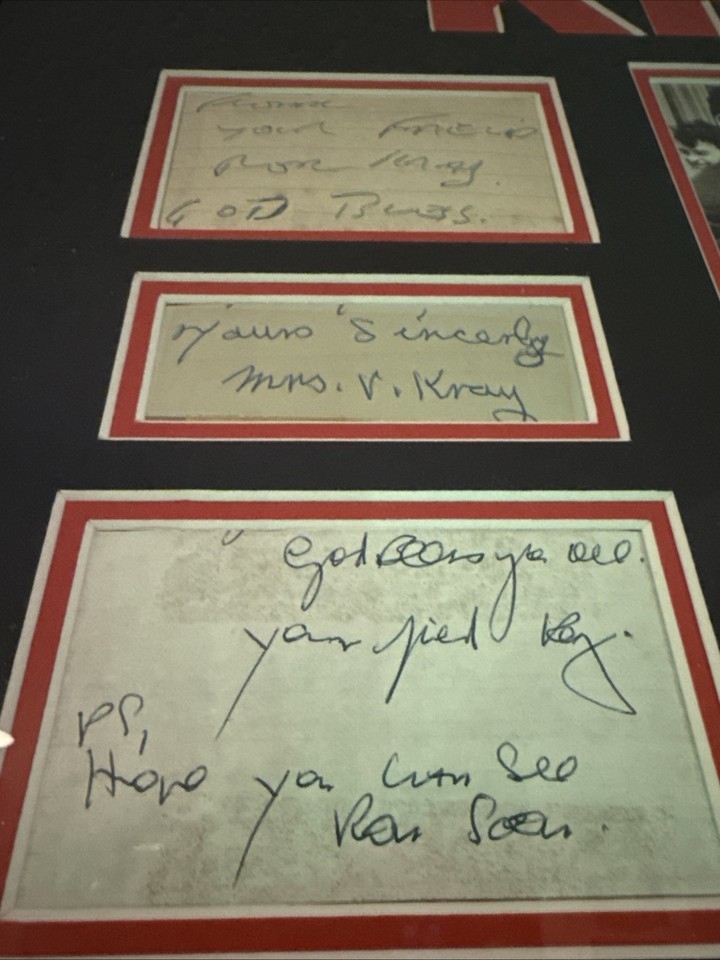 your Friend
Ron Kray.
GOD Bless.
Yours Sincerly
Mrs. V. Kray
God Bless you all.
your friend Reg.
PS,
Hope you can See
Ron Soon.